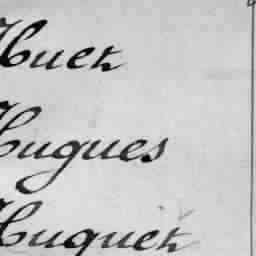 Huet
Hugues
Huguet